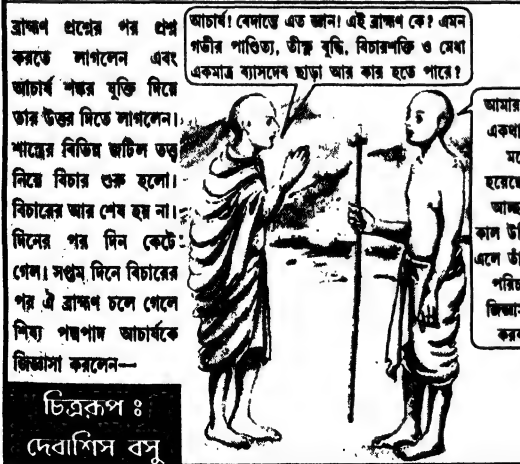 ব্রাহ্মণ প্রশ্নের পর প্রশ্ন
করতে লাগলেন এবং
আচার্য শঙ্কর যুক্তি দিয়ে
তার উত্তর দিতে লাগলেন।
শাস্ত্রের বিভিন্ন জটিল তত্ত্ব
নিয়ে বিচার শুরু হলো।
বিচারের আর শেষ হয় না।
দিনের পর দিন কেটে
গেল। সপ্তম দিনে বিচারের
পর ঐ ব্রাহ্মণ চলে গেলে
শিষ্য পদ্মপাদ আচার্যকে
জিজ্ঞাসা করলেন—
চিত্ররূপ ঃ
দেবাশিস বসু
আচার্য! বেদান্তে এত জ্ঞান! এই ব্রাহ্মণ কে? এমন
গভীর পাণ্ডিত্য, তীক্ষ্ণ বুদ্ধি, বিচারশক্তি ও মেধা
একমাত্র ব্যাসদেব ছাড়া আর কার হতে পারে?
আমার
একথা
মনে
হয়েছে
কাল
এলে
পরিচ
জিজ্ঞাসা
করব